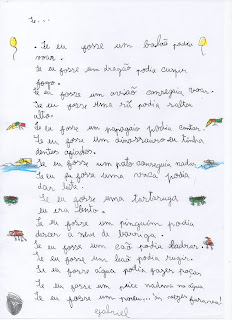 Se...
. Se eu fosse um balão podia
voar.
Se eu fosse um dragão podia cuspir
fogo.
Se eu fosse um avião conseguia voar.
Se eu fosse uma rã podia saltar
alto.
Se eu fosse um papagaio podia cantar.
Se eu fosse um dinossauro eu tinha
dentes afiados.
Se eu fosse um pato conseguia nadar.
Se eu fosse uma vaca podia
dar leite.
Se eu fosse uma tartaruga
eu era lento.
Se eu fosse um pinguim podia
descer a neve de barriga.
Se eu fosse um cão podia ladrar.
Se eu fosse um leão podia rugir.
Se eu fosse água podia fazer poças
Se eu fosse um peixe nadava na água
Se eu fosse um porco...
Gabriel